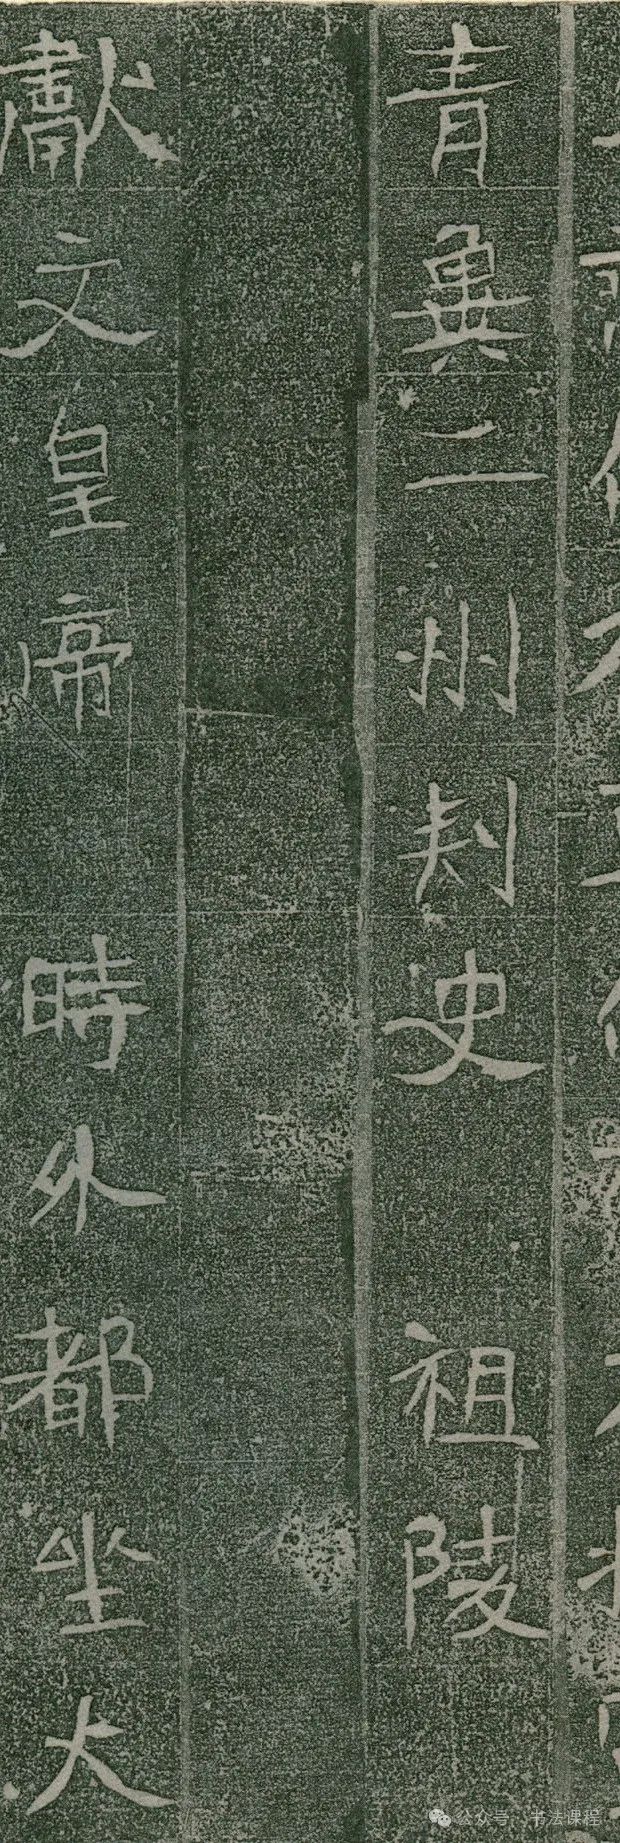 青冀二州刺史 祖陵
獻文皇帝 時外都坐大
公众号：书法课程